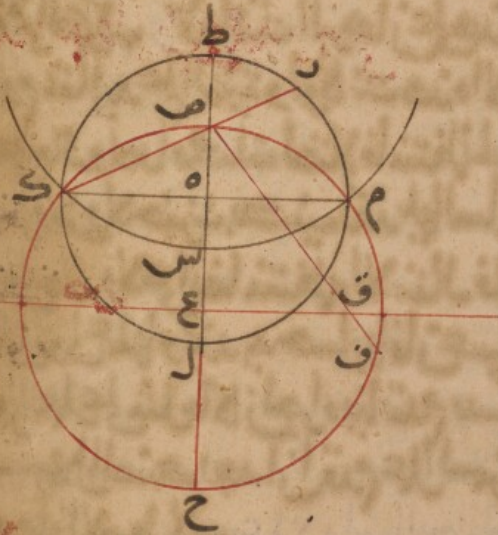 ط
ر
ص
ى
ه
م
س
ع
ق
ل
ف
ح